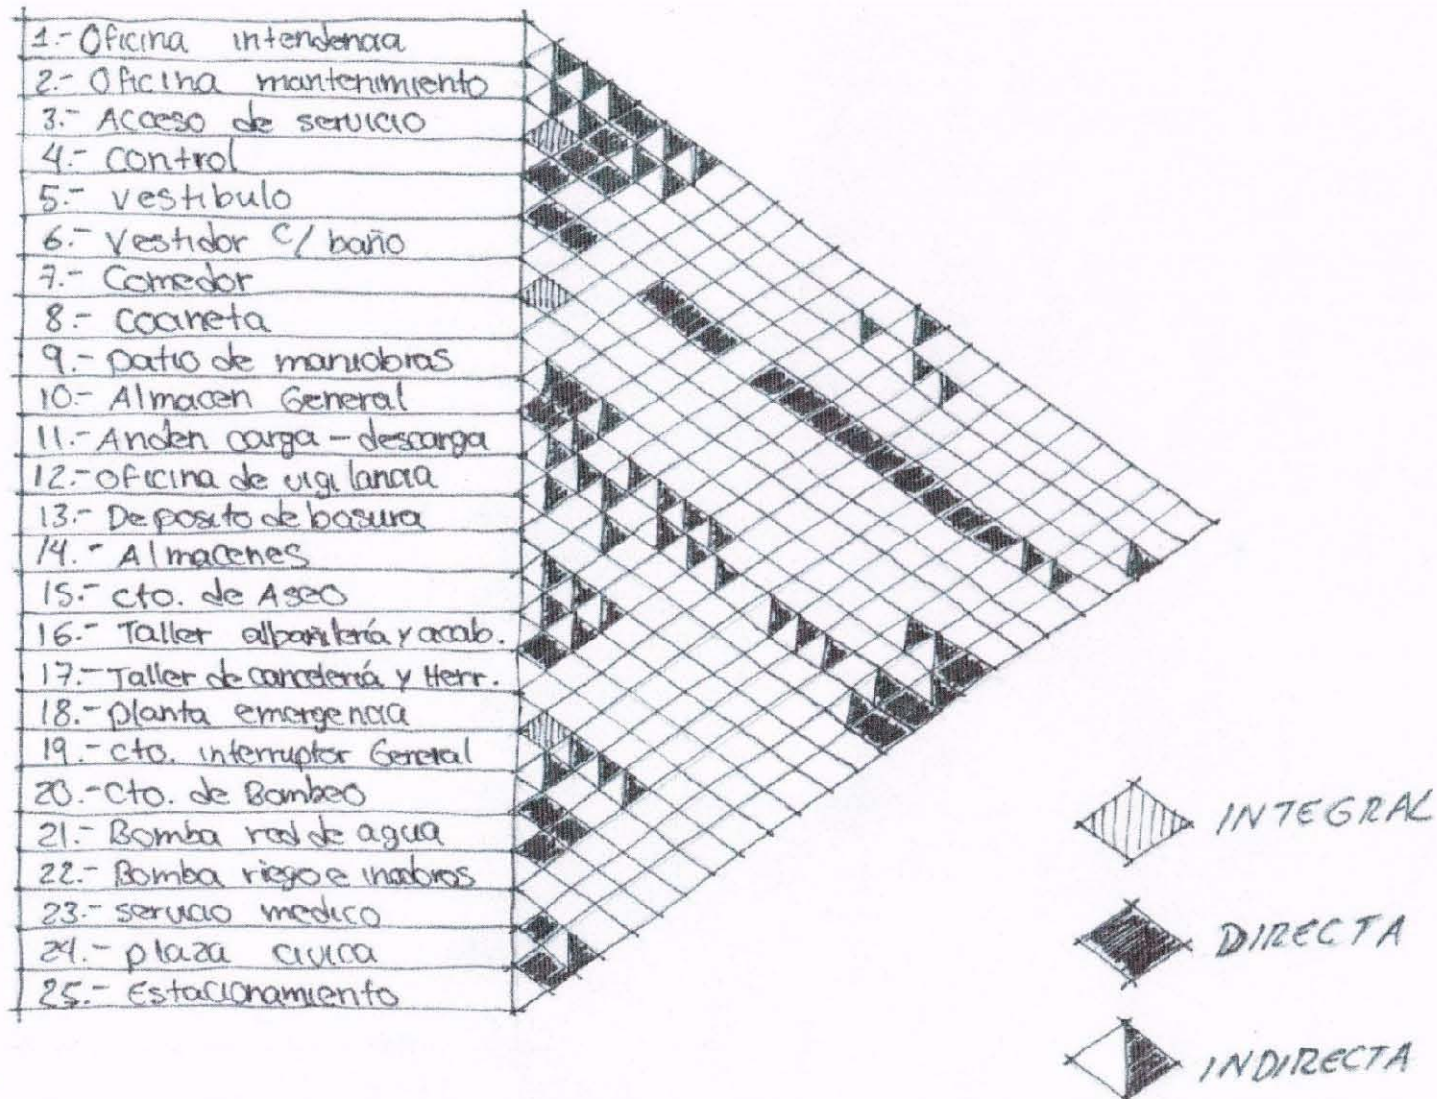 1.- Oficina intendencia
2.- Oficina mantenimiento
3.- Acceso de servicio
4.- control
5.- vestibulo
6.- Vestidor c/ baño
7.- Comedor
8.- Cocineta
9.- patio de maniobras
10.- Almacen General
11.- Anden carga - descarga
12.- oficina de vigilancia
13.- Deposito de basura
14.- Almacenes
15.- cto. de Aseo
16.- Taller albañilería y acab.
17.- Taller de cancelería y Herr.
18.- planta emergencia
19.- cto. interruptor General
20.- Cto. de Bombeo
21.- Bomba red de agua
22.- Bomba riego e inodoros
23.- servicio medico
24.- plaza civica
25.- Estacionamiento
INTEGRAL
DIRECTA
INDIRECTA